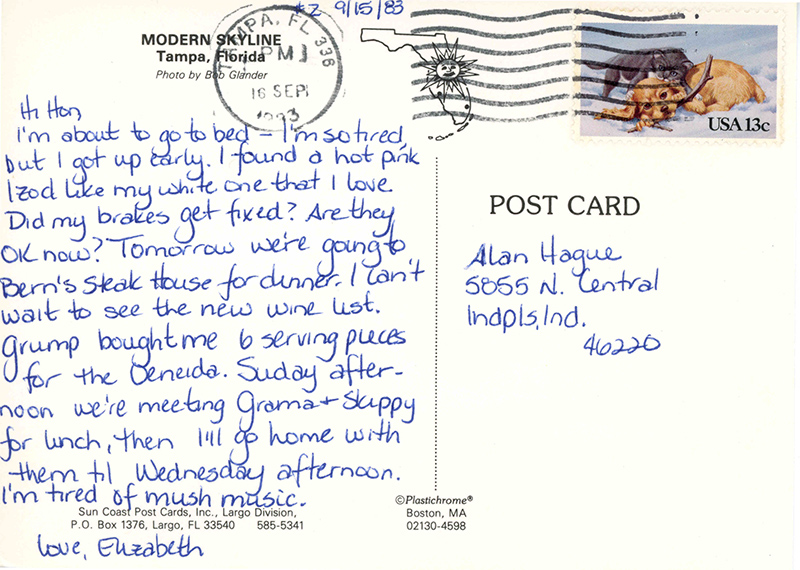 #2 9/15/83
MODERN SKYLINE
Tampa, Florida
Photo by Bob Glander
TAMPA, FL 336
PM
16 SEP
1983
USA 13c
Hi Hon,
I'm about to go to bed – I'm so tired
but I got up early. I found a hot pink
Izod like my white one that I love.
Did my brakes get fixed? Are they
OK now? Tomorrow we're going to
Bern's Steak House for dinner. I can't
wait to see the new wine list.
Grump bought me 6 serving pieces
for the Oeneida. Suday after-
noon we're meeting Grama + Skippy
for lunch, then I'll go home with
them til Wednesday afternoon.
I'm tired of mush music.
Love, Elizabeth
Sun Coast Post Cards, Inc., Largo Division,
P.O. Box 1376, Largo, FL 33540 585-5341
POST CARD
Alan Hague
5855 N. Central
Indpls, Ind.
46220
©Plastichrome®
Boston, MA
02130-4598